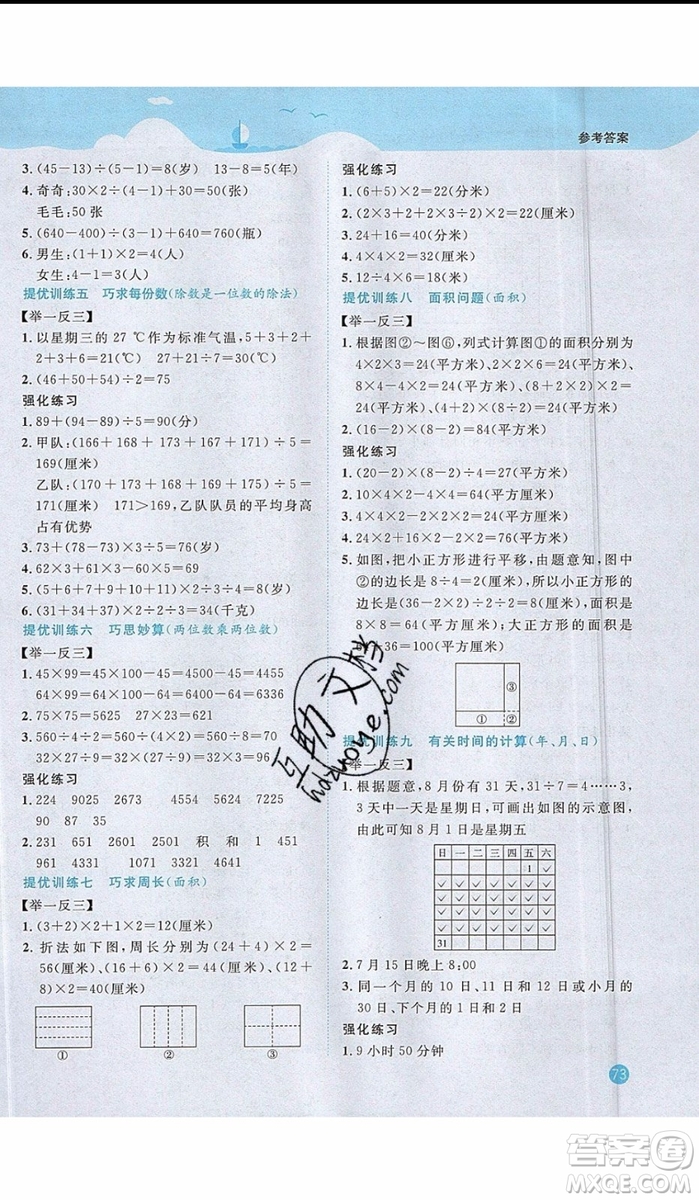 参考答案
3. (45-13)÷(5-1)=8(岁)　13-8=5(年)
4. 奇奇:30×2÷(4-1)+30=50(张)
毛毛:50 张
5. (640-400)÷(3-1)+640=760(瓶)
6. 男生:(1+1)×2=4(人)
女生:4-1=3(人)
提优训练五　巧求每份数(除数是一位数的除法)
【举一反三】
1. 以星期三的 27 ℃作为标准气温,5+3+2+
2+3=15(℃)　27-(15÷5-3)=27(℃)
2. (46+50+54)÷2=75
强化练习
1. 89+(94-89)÷5=90(分)
2. 甲队:(166+168+173+167+171)÷5=
169(厘米)
乙队:(170+173+165+171+176)÷5=
171(厘米)　171>169,乙队队员的平均身高
占有优势
3. 73+(78-73)×3÷5=76(岁)
4. 62×3+61×3-60×5=69
5. (5+6+7+9+10+11)×2÷3÷4=8(岁)
6. (4+3+1)×2÷4×17÷2=34(千克)
提优训练六　巧思妙算(两位数乘两位数)
【举一反三】
1. 45×99=45×100-45=4500-45=4455
64×99=64×100-64=6400-64=6336
2. 75×75=5625　97×97=9409
3. 560÷4÷2=560÷(4×2)=560÷8=70
32×45-32×15=32×(45-15)=32×30=
960
强化练习
1. 224　9025　2673　2574　7225　5621
90　87　35
2. 231　651　2801　2542　积　和　1　451
6960　4331　9951　2449
提优训练七　巧求周长(面积)
【举一反三】
1. (3+2)×2+1×2=12(厘米)
2. 折法如下图,周长分别为(24+4)×2=
56(厘米)
8)×2=40(厘米)
① ② ③
强化练习
1. (6+5)×2=22(分米)
2. (2×3+2+2×3÷2)×2=22(厘米)
3. 24+16=40(分米)
4. 4×4×2=32(厘米)
5. 12÷4×6=18(分米)
提优训练八　面积问题(面积)
【举一反三】
1. 根据图②～图⑥,列式计算图①的面积分别为
4×2×3=24(平方分米)　2×2×6=24(平方分米)
8×4-4×2=24(平方分米)　4×4+4×2=24
(平方分米)
2. (16-2)×2×(2+1)=84(平方厘米)
强化练习
1. (20-2)÷2×(7-4)=27(平方厘米)
2. 10×4×2-4×4=64(平方厘米)
3. 4×4×2-2×2=28(平方厘米)
4. 24×2+16×2-2×2=76(平方厘米)
5. 如图,把小正方形进行平移,由题意知,图中
②的边长是 8÷4=2(厘米),所以小正方形的
边长是(36-2×2)÷2÷2=8(厘米),面积是
8×8=64(平方厘米),大正方形面积是
+36=100(平方厘米)
③
① ②
提优训练九　有关时间的计算(年、月、日)
【举一反三】
1. 根据题意,8 月份有 31 天,31÷7=4……3,
3 天中一天是星期日,可画出如图的示意图,
由此可知 8 月 1 日是星期五
日 一 二 三 四 五 六
1 ✓
✓ ✓ ✓ ✓ ✓ ✓ ✓
✓ ✓ ✓ ✓ ✓ ✓ ✓
✓ ✓ ✓ ✓ ✓ ✓ ✓
✓ ✓ ✓ ✓ ✓ ✓ ✓
31
2. 7 月 15 日晚上 8:00
3. 同一个月的 10 日、11 日、12 日或 4 月的
30 日、下个月的 1 日和 2 日
强化练习
1. 9 小时 50 分钟
73
互助文档
hdzuoye.com
答案圈
MXQE.COM